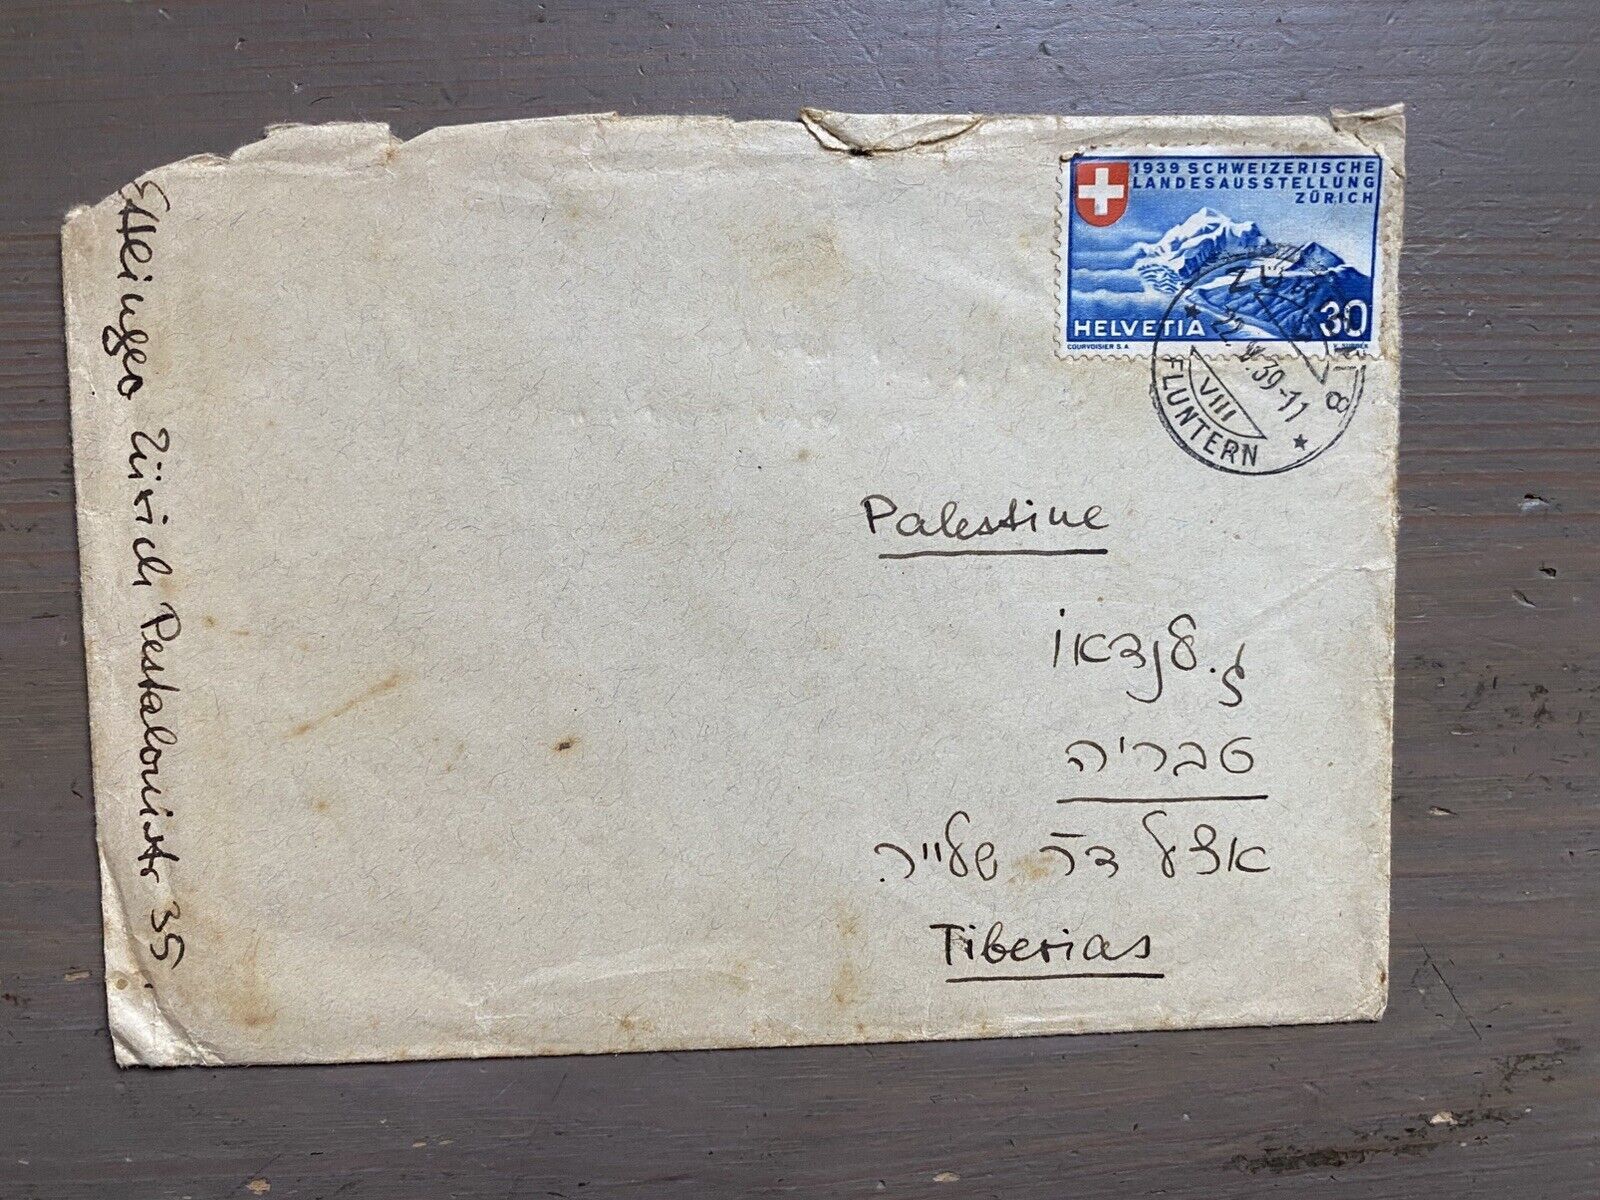 1939 SCHWEIZERISCHE
LANDESAUSSTELLUNG
ZÜRICH
HELVETIA 30
COURVOISIER S.A
ZÜRICH 8
22. V. 39-11
VIII
FLUNTERN
Palestine
לנדאו
טבריה
אצל דר שלייר.
Tiberias
Zürich Pestalozzistr 35.